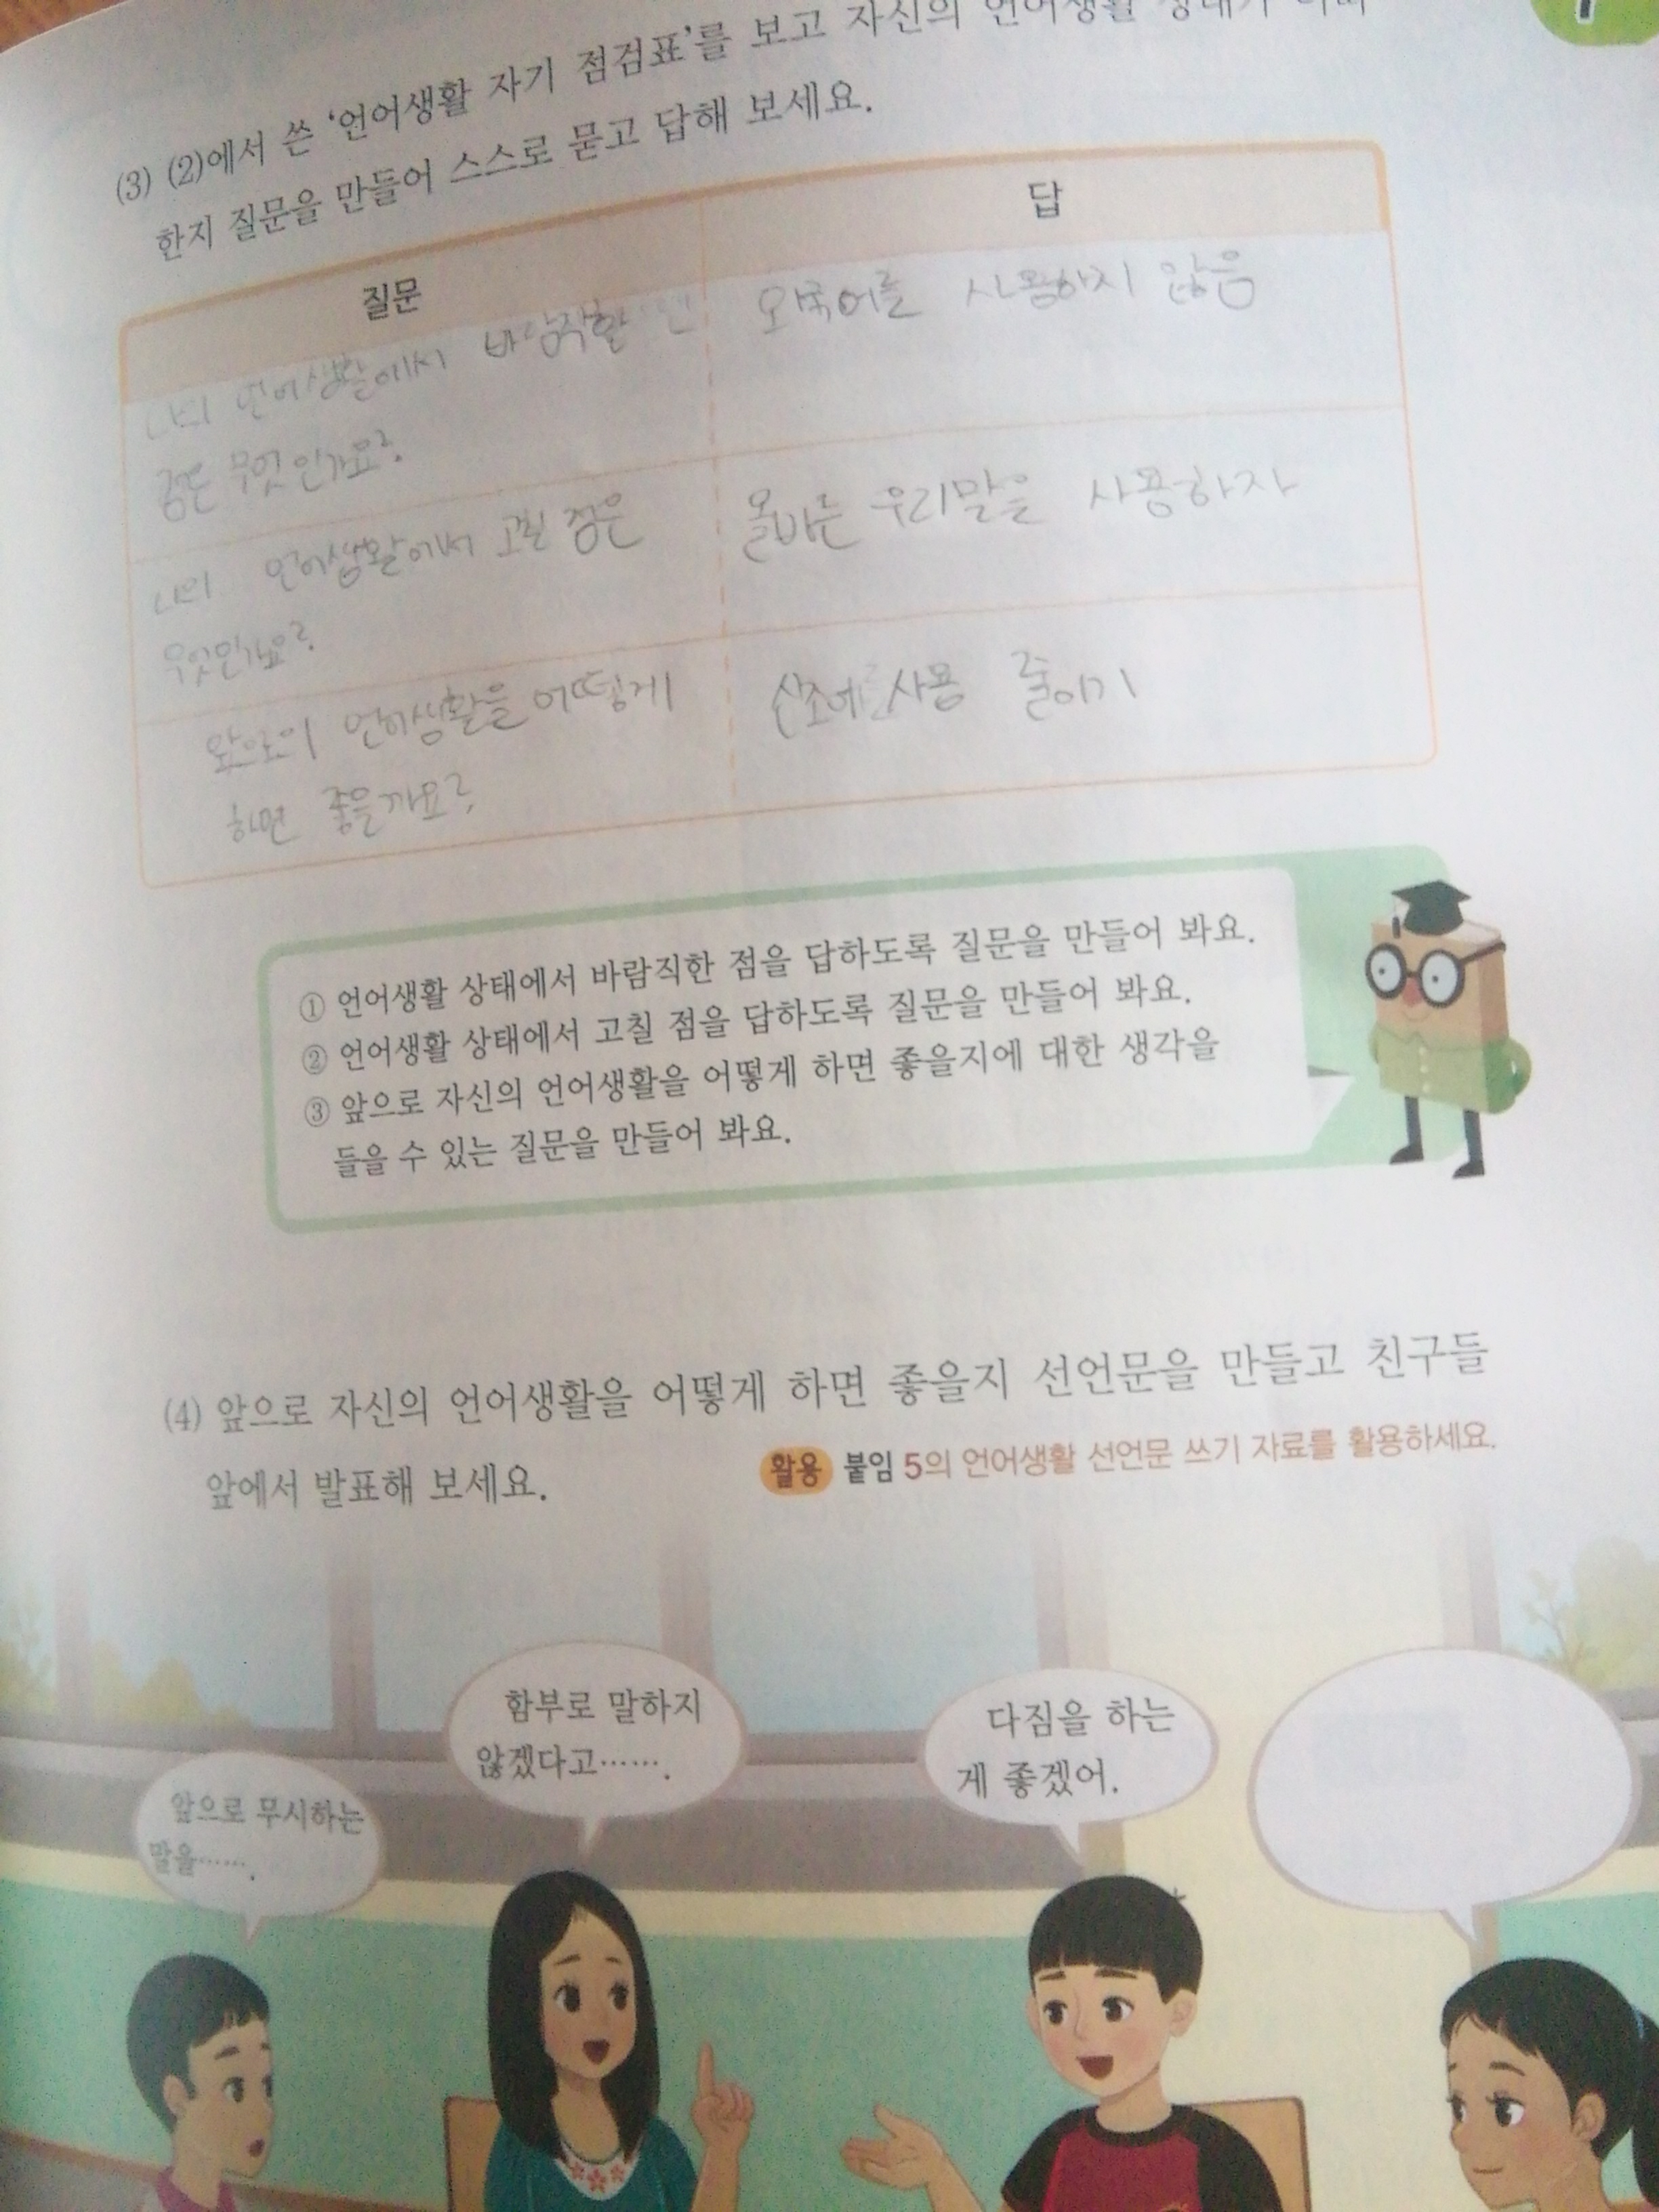 (3) (2)에서 쓴 '언어생활 자기 점검표'를 보고 자신의 언어생활 상태가
한지 질문을 만들어 스스로 묻고 답해 보세요.
질문
답
나의 언어생활에서 바람직한
점은 무엇인가요?
외국어를 사용하지 않음
나의 언어생활에서 고칠 점은
무엇인가요?
올바른 우리말을 사용하자
앞으로의 언어생활을 어떻게
하면 좋을까요?
사용 줄이기
① 언어생활 상태에서 바람직한 점을 답하도록 질문을 만들어 봐요.
② 언어생활 상태에서 고칠 점을 답하도록 질문을 만들어 봐요.
③ 앞으로 자신의 언어생활을 어떻게 하면 좋을지에 대한 생각을
들을 수 있는 질문을 만들어 봐요.
(4) 앞으로 자신의 언어생활을 어떻게 하면 좋을지 선언문을 만들고 친구들
앞에서 발표해 보세요.
활용 붙임 5의 언어생활 선언문 쓰기 자료를 활용하세요.
앞으로 무시하는
말을…….
함부로 말하지
않겠다고…….
다짐을 하는
게 좋겠어.